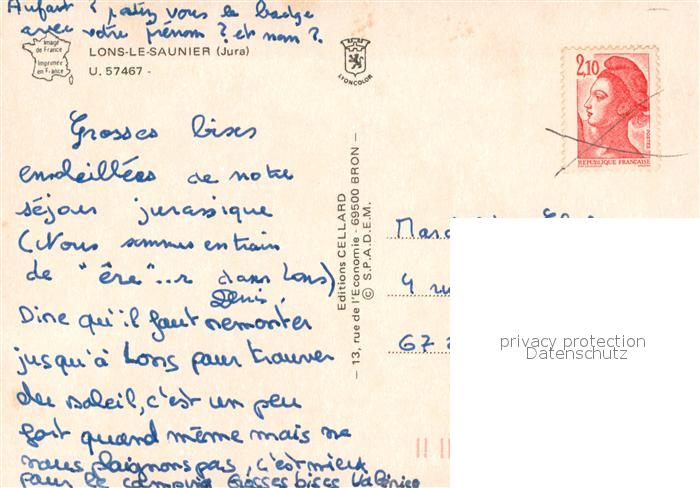 Aufait ? portez vous le badge
avec votre prénom ? et nom ?
Image
de France
Imprimée
en France
LONS-LE-SAUNIER (Jura)
U. 57467 -
LYONCOLOR
2,10
POSTES
REPUBLIQUE FRANCAISE
Grosses bises
ensoleillées de notre
séjour jurassique
(Nous sommes en train
de "ère"...r dans Lons)
Denis,
Dire qu'il faut remonter
jusqu'à Lons pour trouver
du soleil, c'est un peu
fort quand même mais ne
nous plaignons pas, c'est mieux
pour le camping Grosses bises Valérie
Editions CELLARD
— 13, rue de l'Economie - 69500 BRON —
© S.P.A.D.E.M.
4
67
privacy protection
Datenschutz